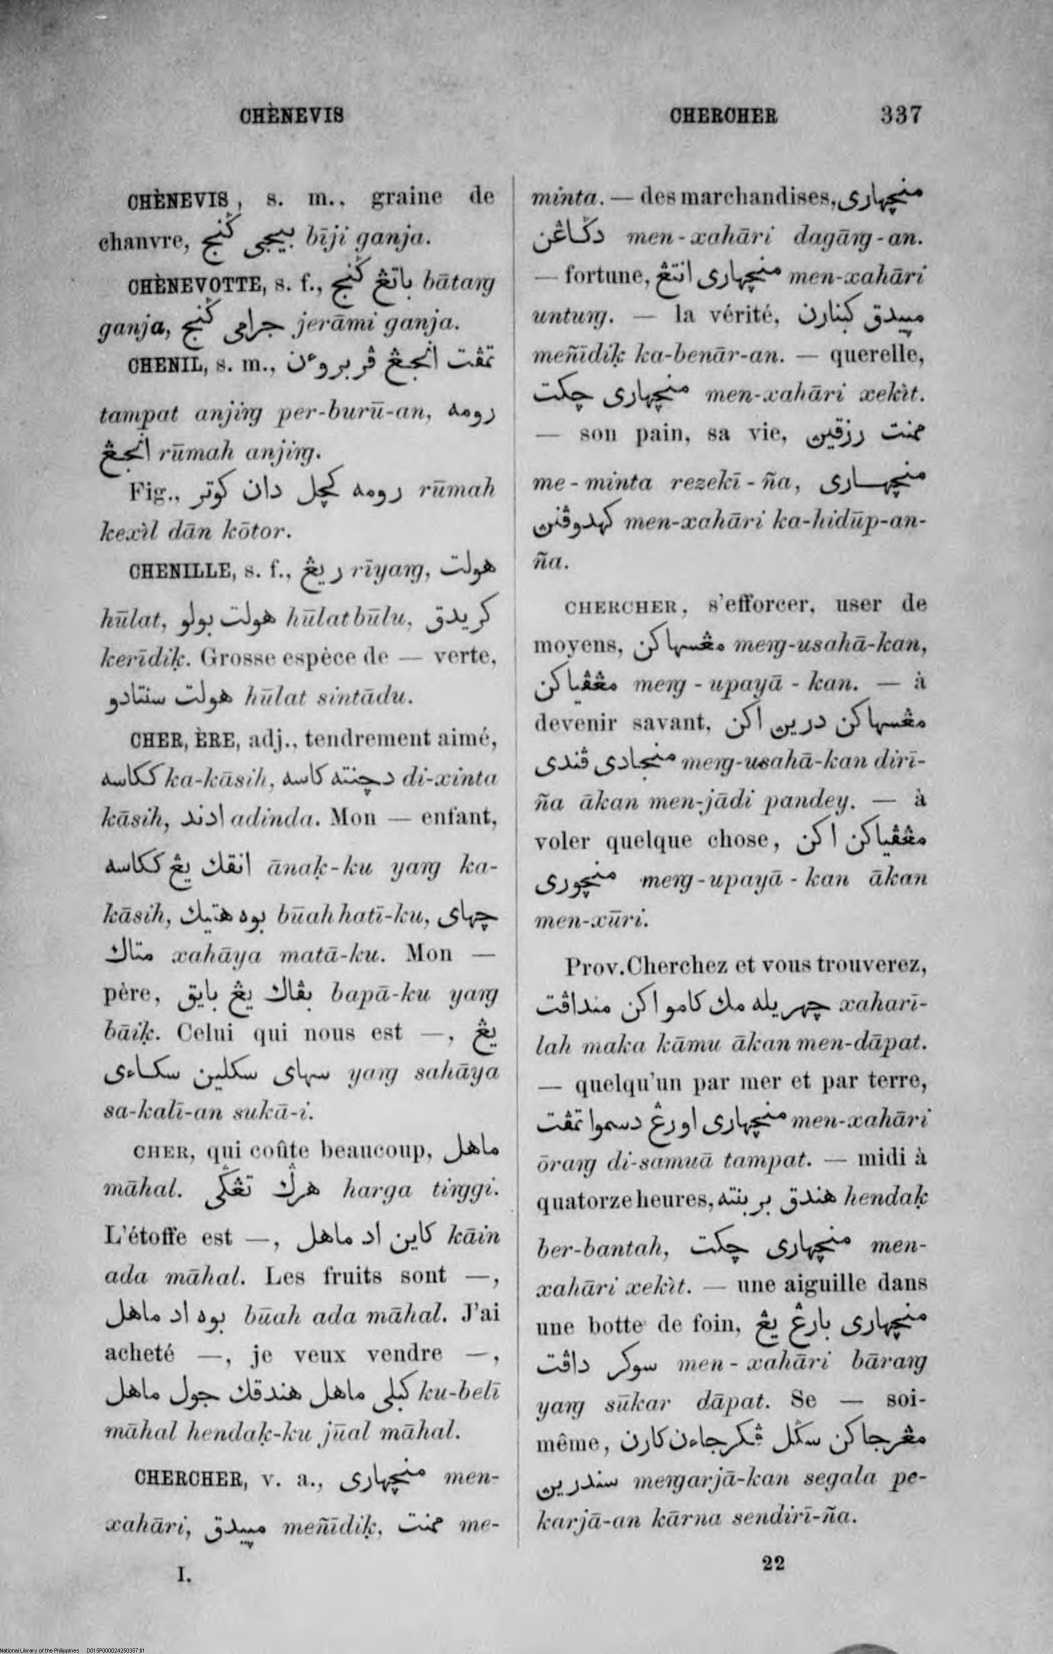 CHÈNEVIS
CHERCHER 337
CHÈNEVIS, s. m., graine de
chanvre, بيجي ڬنج bīji ganja.
CHÈNEVOTTE, s. f., باتڠ ڬنج bātaṅg
ganja, جرامي ڬنج jerāmi ganja.
CHENIL, s. m., تمڤت انجيڠ ڤربروءن
tampat anjiṅg per-burū-an, رومه
انجيڠ rūmah anjiṅg.
Fig., رومه كچل دان كوتر rūmah
kexìl dān kōtor.
CHENILLE, s. f., ريڠ rīyaṅg, هولت
hūlat, هولت بولو hūlat būlu, كريدق
kerīdiḳ. Grosse espèce de — verte,
هولت سنتادو hūlat sintādu.
CHER, ÈRE, adj., tendrement aimé,
ككاسه ka-kāsih, دچنته كاسه di-xinta
kāsih, ادند adinda. Mon — enfant,
انقك يڠ ككاسه ānaḳ-ku yaṅg ka-
kāsih, بوه هتيك būah hatī-ku, چهاي
متاك xahāya matā-ku. Mon —
père, بڤاك يڠ بايق bapā-ku yaṅg
bāiḳ. Celui qui nous est —, يڠ
سهاي سكلين سكاءي yaṅg sahāya
sa-kalī-an sukā-i.
CHER, qui coûte beaucoup, ماهل
māhal. هرڬ تڠڬي harga tiṅggi.
L'étoffe est —, كاين اد ماهل kāin
ada māhal. Les fruits sont —,
بوه اد ماهل būah ada māhal. J'ai
acheté —, je veux vendre —,
كبلي ماهل هندقك جول ماهل ku-belī
māhal hendaḳ-ku jūal māhal.
CHERCHER, v. a., منچهاري men-
xahāri, مييدق meñīdiḳ, ممنت me-
I.
minta. — des marchandises, منچهاري
دڬاڠن men-xahāri dagāṅg-an.
— fortune, منچهاري انتڠ men-xahāri
untuṅg. — la vérité, مييدق كبنارن
meñīdiḳ ka-benār-an. — querelle,
منچهاري چكت men-xahāri xekìt.
— son pain, sa vie, ممنت رزقين
me-minta rezekī-ña, منچهاري
كهدوڤنن men-xahāri ka-hidūp-an-
ña.
CHERCHER, s'efforcer, user de
moyens, مڠسهاكن meṅg-usahā-kan,
مڠڤياكن meṅg-upayā-kan. — à
devenir savant, مڠسهاكن درين اكن
منجادي ڤندي meṅg-usahā-kan dirī-
ña ākan men-jādi pandey. — à
voler quelque chose, مڠڤياكن اكن
منچوري meṅg-upayā-kan ākan
men-xūri.
Prov. Cherchez et vous trouverez,
چهريله مك كامو اكن منداڤت xaharī-
lah maka kāmu ākan men-dāpat.
— quelqu'un par mer et par terre,
منچهاري اورڠ دسموا تمڤت men-xahāri
ōraṅg di-samuā tampat. — midi à
quatorze heures, هندق بربنته hendaḳ
ber-bantah, منچهاري چكت men-
xahāri xekìt. — une aiguille dans
une botte de foin, منچهاري بارڠ يڠ
سوكر داڤت men-xahāri bāraṅg
yaṅg sūkar dāpat. Se — soi-
même, مڠرجاكن سڬل ڤكرجاءن كارن
سندرين meṅgarjā-kan segala pe-
karjā-an kārna sendirī-ña.
22
National Library of the Philippines